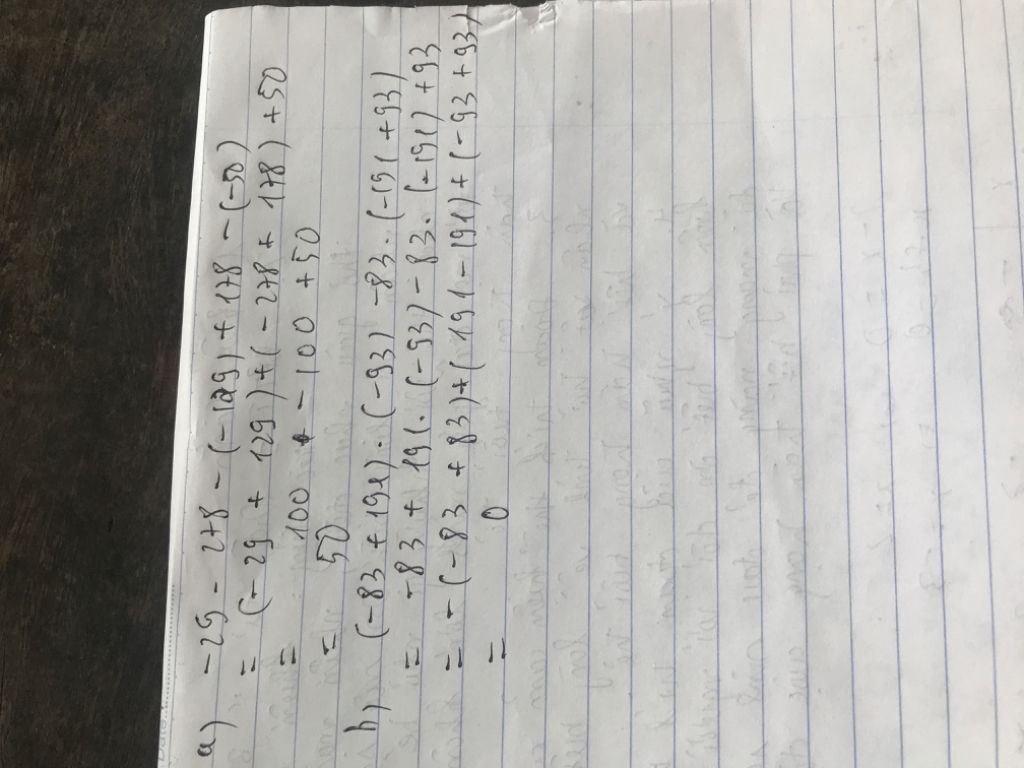 a) -29 - 278 - (-129) + 178 - (-50)
= (-29 + 129) + (-278 + 178) + 50
= 100 - 100 + 50
= 50
b) (-83 + 191) . (-93) - 83 . (-191 + 93)
= -83 + 191 . (-93) - 83 . (-191) + 93
= - (-83 + 83) + (191 - 191) + (-93 + 93)
= 0